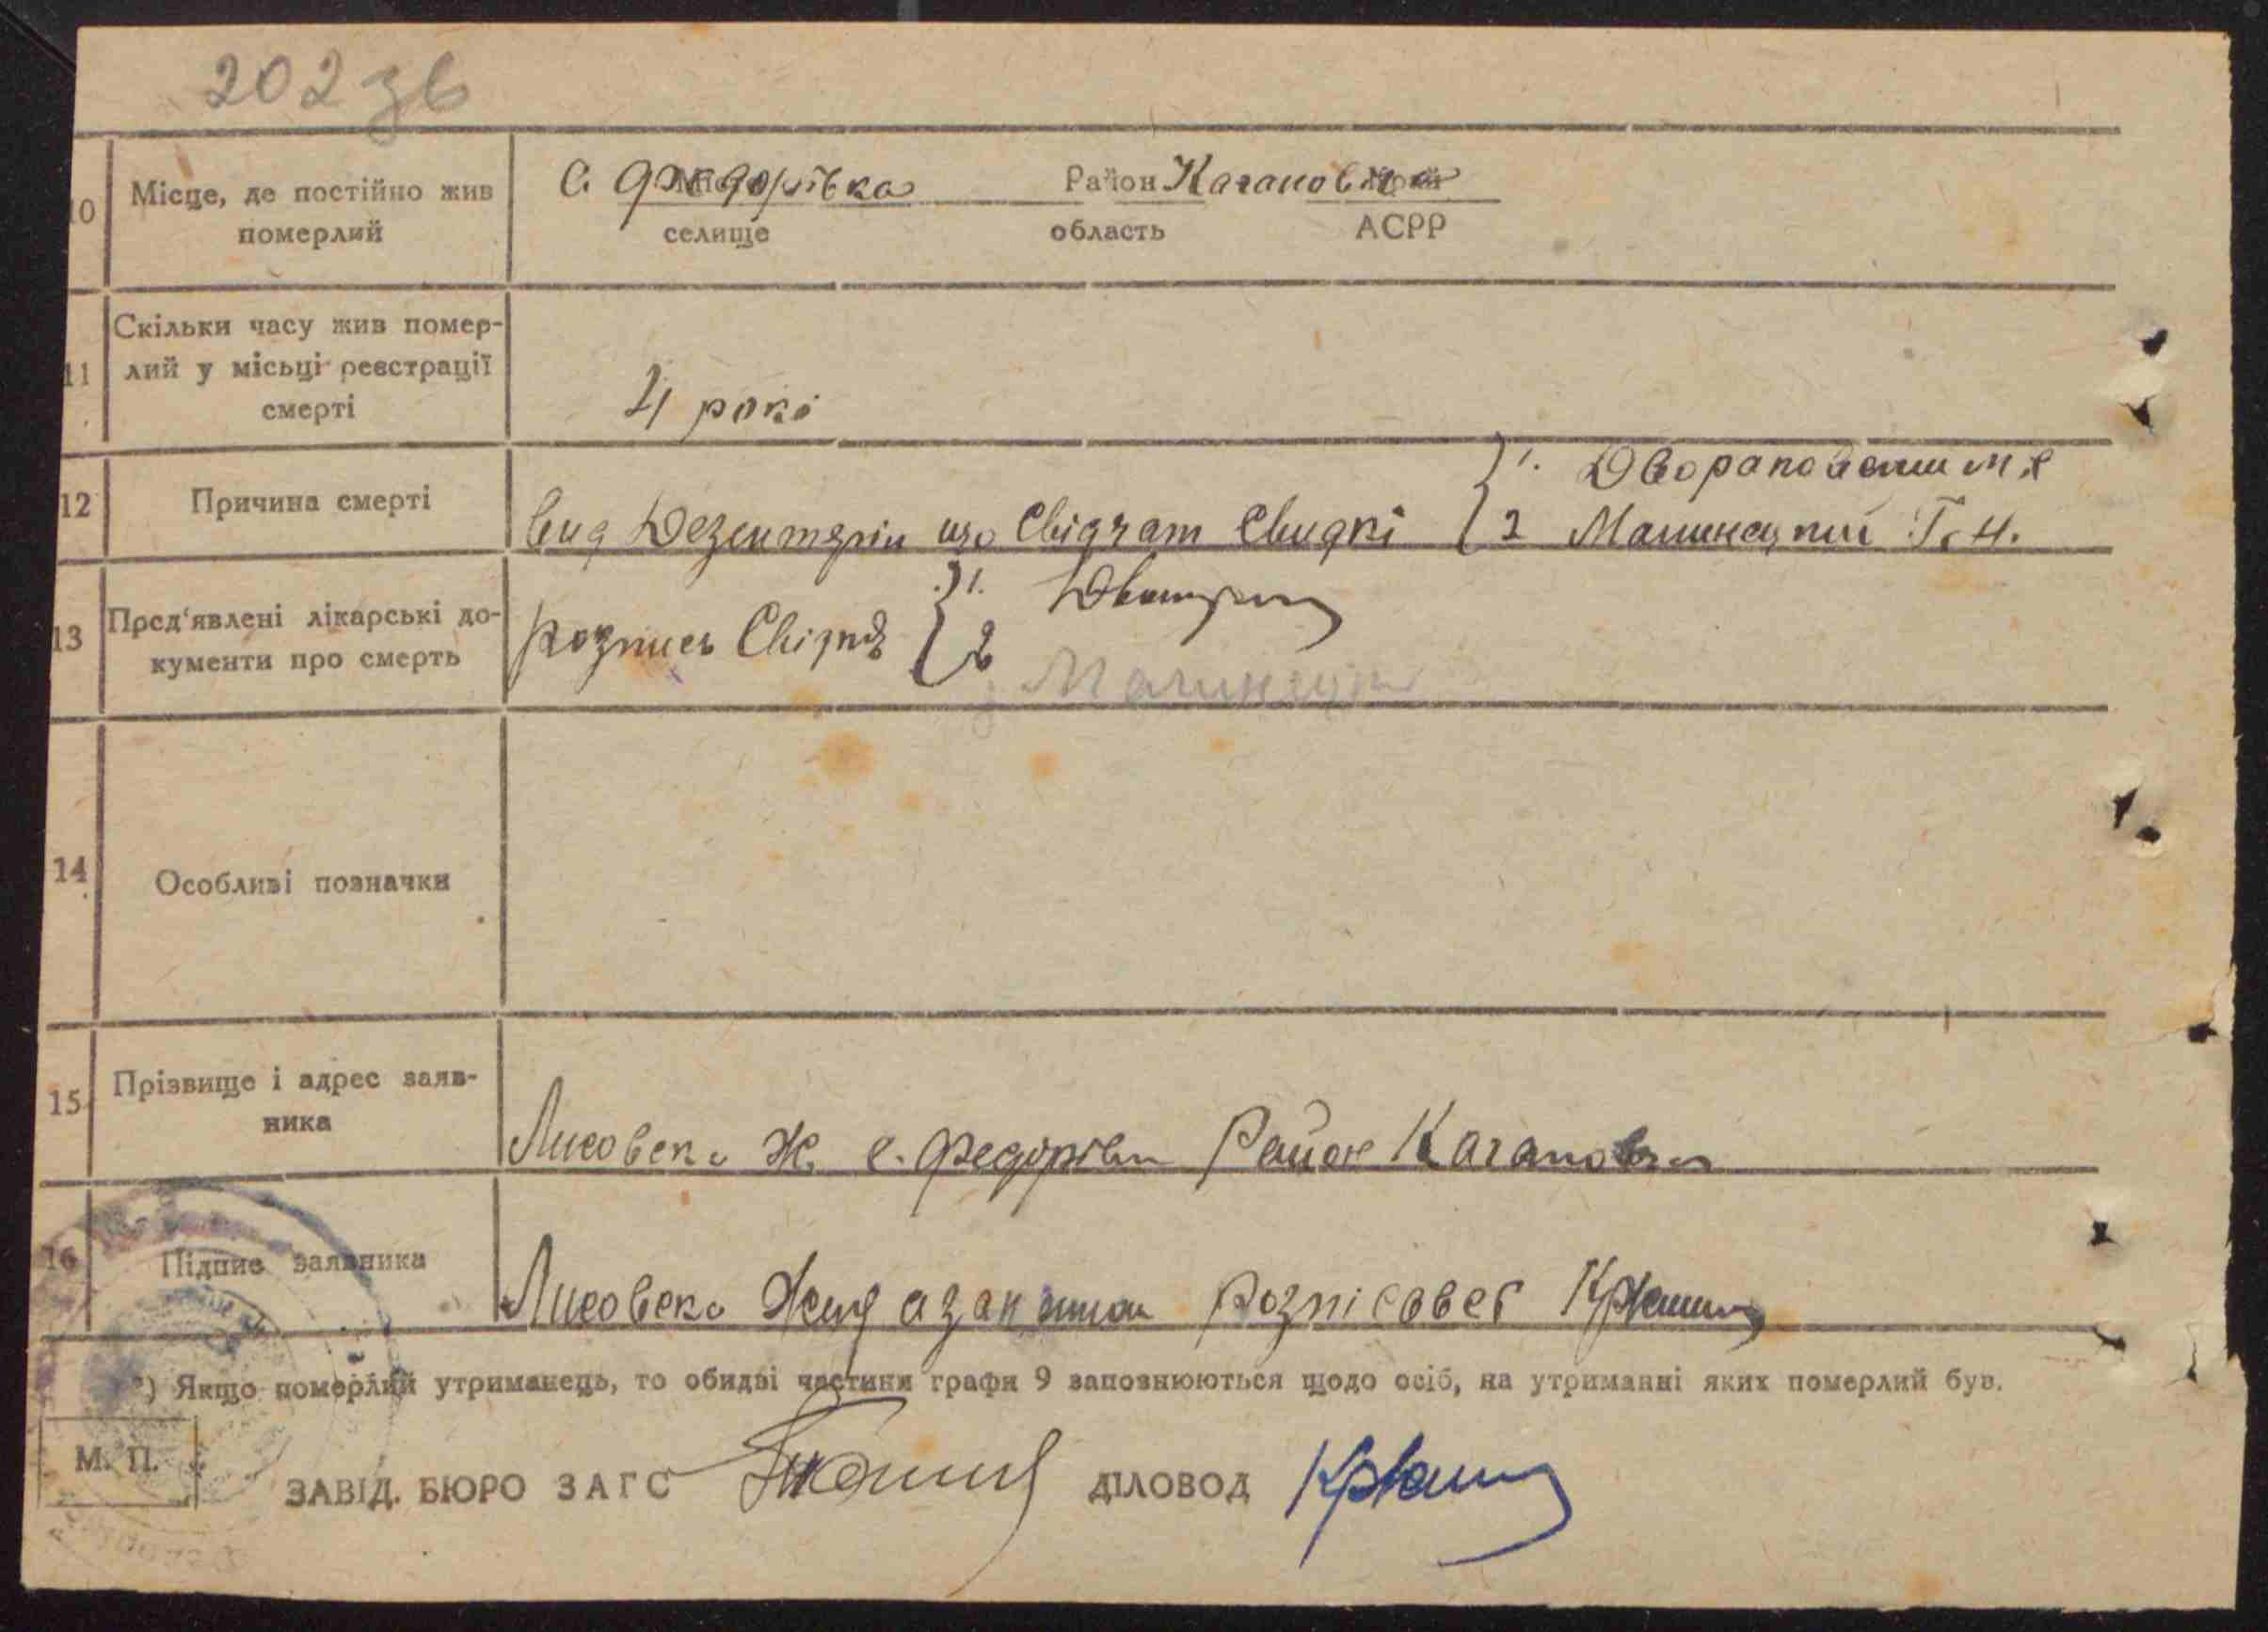 202 зв
10 Місце, де постійно жив померлий
С. Федорівка Район Каганович
селище область АСРР
11 Скільки часу жив помер-
лий у місьці реєстрації
смерті
4 рокі
12 Причина смерті
вид Дезентерін що Свідчат Свидкі
1.
2 Малинецкий Г. Н.
13 Пред'явлені лікарські до-
кументи про смерть
Розпись
1.
2
14 Особливі позначки
15 Прізвище і адрес заяв-
ника
Лисовска Ж. с. Федорівка Район Каганович
16 Підпис заявника
Лисовска
*) Якщо померлий утриманець, то обидві частини графи 9 заповнюються щодо осіб, на утриманні яких померлий був.
М. П.
ЗАВІД. БЮРО ЗАГС ДІЛОВОД